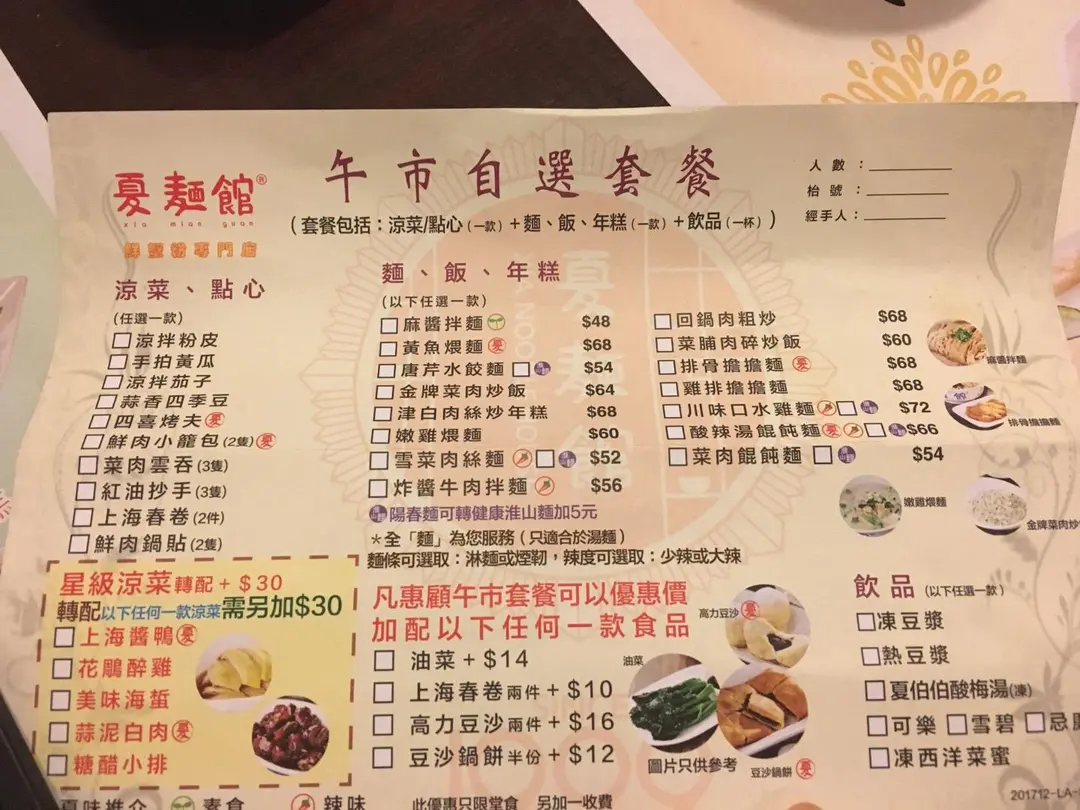 夏麵館®
xia mian guan
午市自選套餐
(套餐包括：涼菜/點心(一款)+麵、飯、年糕(一款)+飲品(一杯))
人數：
枱號：
經手人：
涼菜、點心
(任選一款)
涼拌粉皮
手拍黃瓜
涼拌茄子
蒜香四季豆
四喜烤夫
鮮肉小籠包(2隻)
菜肉雲吞(3隻)
紅油抄手(3隻)
上海春卷(2件)
鮮肉鍋貼(2隻)
麵、飯、年糕
(以下任選一款)
麻醬拌麵 $48
黃魚煨麵 $68
唐芹水餃麵 $54
金牌菜肉炒飯 $64
津白肉絲炒年糕 $68
嫩雞煨麵 $60
雪菜肉絲麵 $52
炸醬牛肉拌麵 $56
回鍋肉粗炒 $68
菜脯肉碎炒飯 $60
排骨擔擔麵 $68
雞排擔擔麵 $68
川味口水雞麵 $72
酸辣湯餛飩麵 $66
菜肉餛飩麵 $54
麻醬拌麵
排骨擔擔麵
嫩雞煨麵
金牌菜肉炒
陽春麵可轉健康淮山麵加5元
*全「麵」為您服務(只適合於湯麵)
麵條可選取：淋麵或煙韌，辣度可選取：少辣或大辣
星級涼菜轉配+$30
轉配以下任何一款涼菜需另加$30
上海醬鴨
花鵰醉雞
美味海蜇
蒜泥白肉
糖醋小排
凡惠顧午市套餐可以優惠價
加配以下任何一款食品
油菜+$14
上海春卷兩件+$10
高力豆沙兩件+$16
豆沙鍋餅半份+$12
高力豆沙
油菜
圖片只供參考
豆沙鍋餅
飲品(以下任選一款)
凍豆漿
熱豆漿
夏伯伯酸梅湯(凍)
可樂 雪碧 忌
凍西洋菜蜜
201712-LA-
夏味推介 素食 辣味 此優惠只限堂食 另加一收費